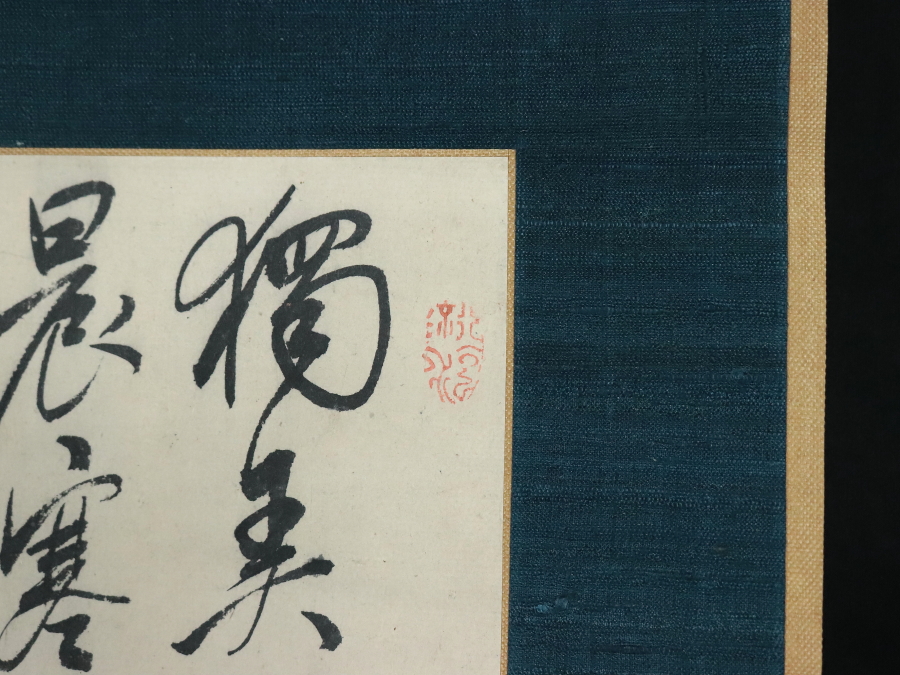 獨美
晨寒